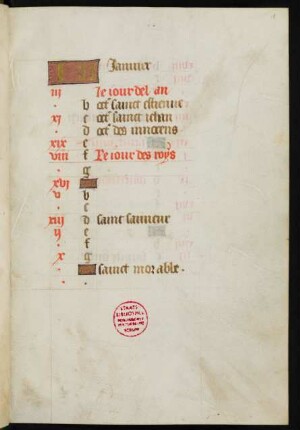 Januier
iii le iour del an
b oct̃ sainct estienne
xi c oct̃ sainct iehan
d oct̃ des innocens
xix e
viii f Le iour des roys
g
xvi
v b
c
xiii d saint sauueur
ii e
f
x g
sainct mor able.
STAATS
BIBLIOTHEK